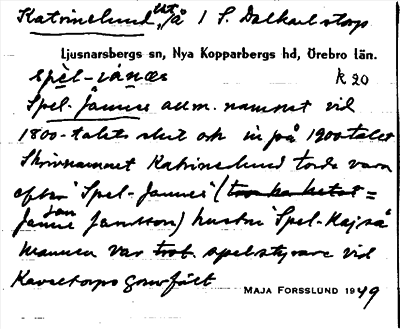 Katrinelund, ut å 1 S. Dalkarlstorp
Ljusnarsbergs sn, Nya Kopparbergs hd, Örebro län.
spèl-jánəs k 20
Spel-Jannes allm. namnet vid
1800-talets slut och in på 1900talet
Skrivnamnet Katrinelund torde vara
efter "Spel-Jannes" ( =
Jan
Janne Jansson) hustru "Spel-Kajsa"
Mannen var spelstyrare vid
Kaveltorps gruvfält
MAJA FORSSLUND 1949